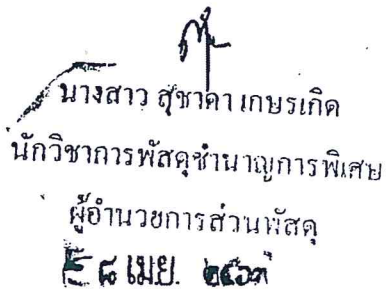 นางสาว สุชาดา เกษรเกิด
นักวิชาการพัสดุชำนาญการพิเศษ
ผู้อำนวยการส่วนพัสดุ
๘ เม.ย. ๒๕๖๓